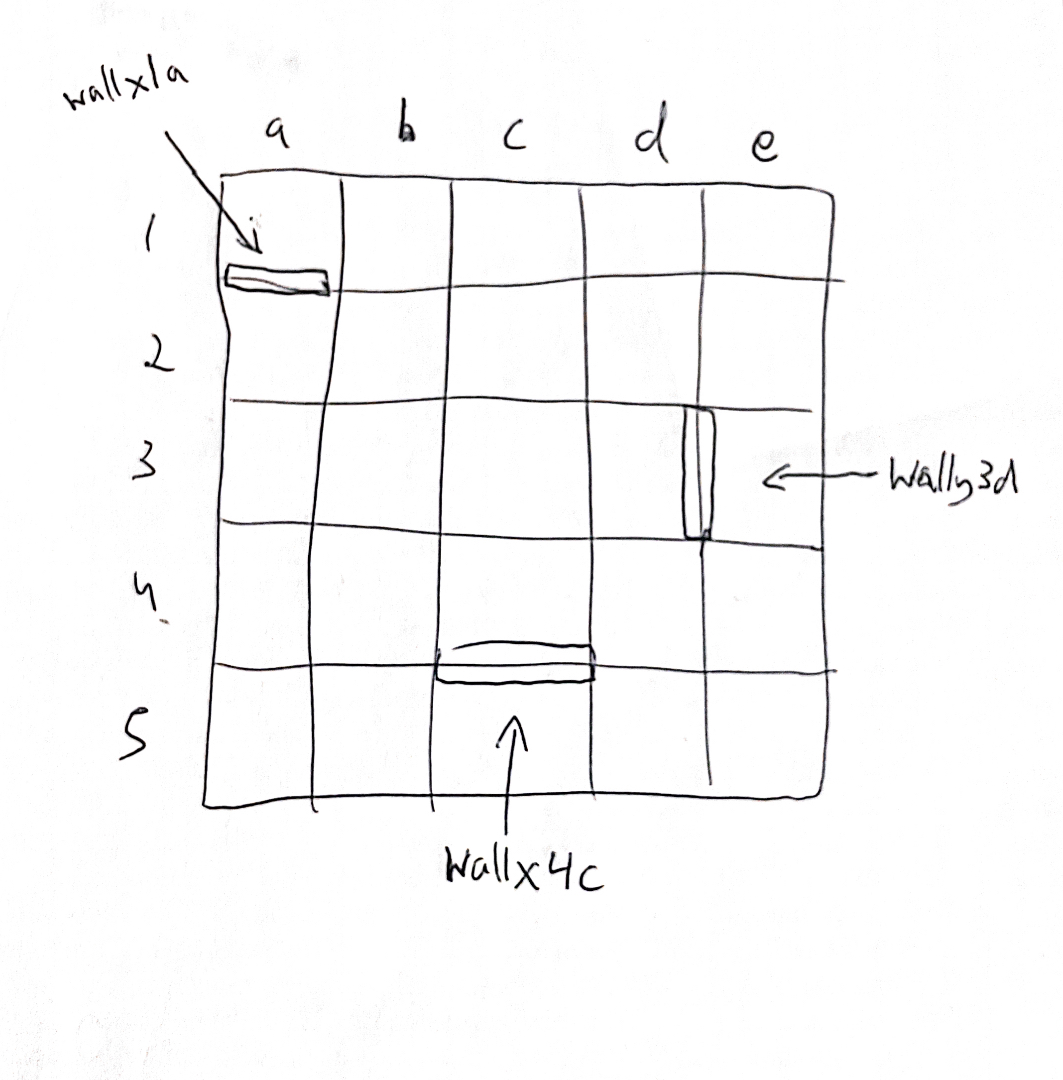 wallx1a
a b c d e
1
2
3
wally3d
4
5
wallx4c